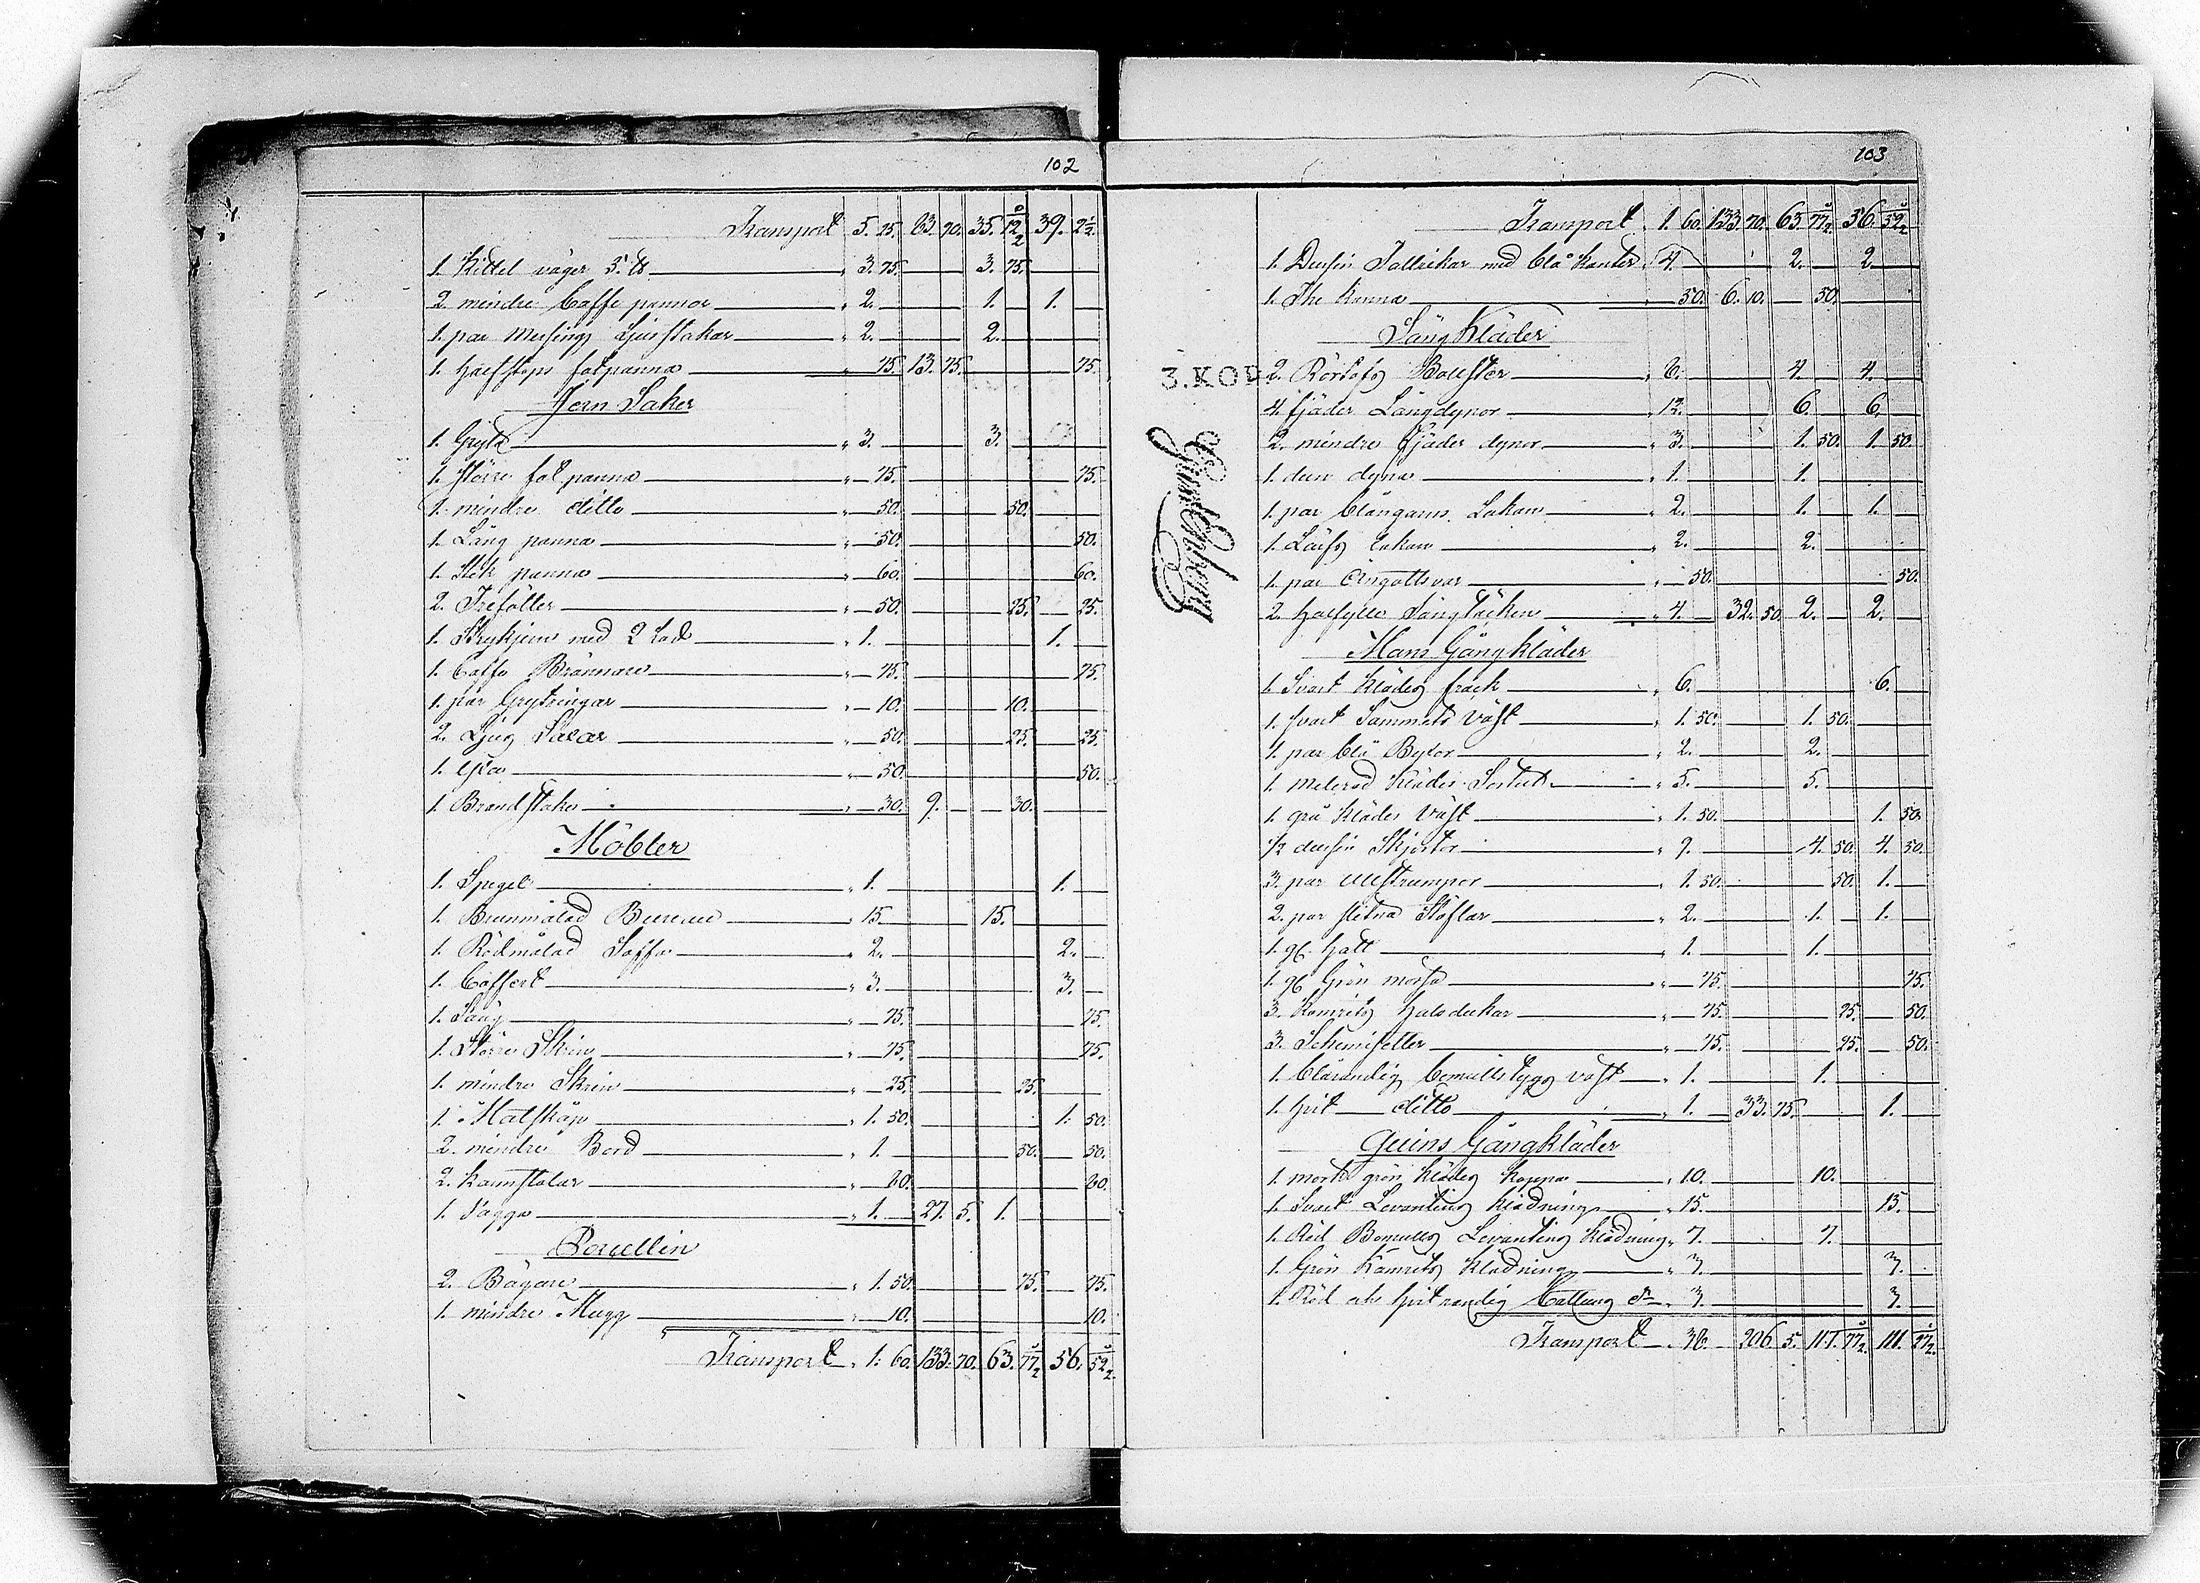 102
Transport 5. 25. 83. 70. 35. 12 1/2 39. 2 1/2
1. Kittel väger 5. ℔ " 3. 75. 3. 75.
2. mindre Caffe pannor " 2. 1. 1.
1. par Messings Ljusstakar " 2. 2.
1. Halfstops fotpanna " 75. 13. 75. 75.
Jern Saker
1. Gryta " 3. 3.
1. större fotpanna " 75. 75.
1. mindre ditto " 50. 50.
1. Lång panna " 50. 50.
1. Stek panna " 60. 60.
2. Trefötter " 50. 25. 25.
1. Strykjern med 2 Lod " 1. 1.
1. Caffe Brännare " 75. 75.
1. par Grytringar " 10. 10.
2. Ljus Saxar " 50. 25. 25.
1. Yxa " 50. 50.
1. Brandstake " 30. 9. 30.
Möbler
1. Spegel " 1. 1.
1. Brunmålad Bureau " 15. 15.
1. Rödmålad Soffa " 2. 2.
1. Coffert " 3. 3.
1. Säng " 75. 75.
1. Större Skrin " 75. 75.
1. mindre Skrin " 25. 25.
1. Matskåp " 1. 50. 1. 50.
2. mindre Bord " 1. 50. 50.
2. Karmstolar " 80. 80.
1. Vagga " 1. 27. 5. 1.
Porcellin
2. Bägare " 1. 50. 75. 75.
1. mindre Mugg " 10. 10.
Transport " 1. 60. 133. 70. 63. 77 1/2 56. 52 1/2
103
Transport " 1. 60. 133. 70. 63. 77 1/2 56. 52 1/2
1. Dussin Tallrikar med blå kanter " 4. 2. 2
1. The Kanna 50. 6. 10. 50.
Sängkläder
3. KOP
2. Bolster " 8. 4. 4.
4. fjäder Långdynor " 12. 6. 6.
2. mindre fjäder dynor " 3. 1. 50. 1. 50.
1. dun dyna " 1. 1.
1. par blångarns Lakan " 2. 1. 1.
1. Lärfts Lakan " 2. 2.
1. par Örngottsvar " 50. 50.
2. Sängtäcken " 4. 32. 50. 2. 2.
Mans Gångkläder
1. Svart Klädes frack " 6. 6.
1. svart Sammets Väst " 1. 50. 1. 50.
1. par blå Byxor " 2. 2.
1. Melerad Klädes Sortut " 5. 5.
1. grå Klädes Väst " 1. 50. 1. 50.
1/2 dussin Skjortor " 9. 4. 50. 4. 50.
3. par Ullstrumpor " 1. 50. 50. 1.
2. par slitna Stöflar " 2. 1. 1.
1. gl. Hatt " 1. 1.
1. gl. Grön mössa " 75. 75.
3. Kamrits Halsdukar " 75. 25. 50.
3. Schemisetter " 75. 25. 50.
1. blårandig bomullstygs väst " 1. 1.
1. hvit ditto " 1. 33. 75. 1.
Quins Gångkläder
1. mörk grön Klädes Kappa " 10. 10.
1. Svart Levantins Klädning " 15. 15.
1. Röd Bomulls Levantins Klädning " 7. 7.
1. Grön Kamrits Klädning " 3. 3.
1. Röd och hvitrandig Cattuns do " 3. 3.
Transport " 38. 206. 5. 117. 77 1/2 111. 27 1/2